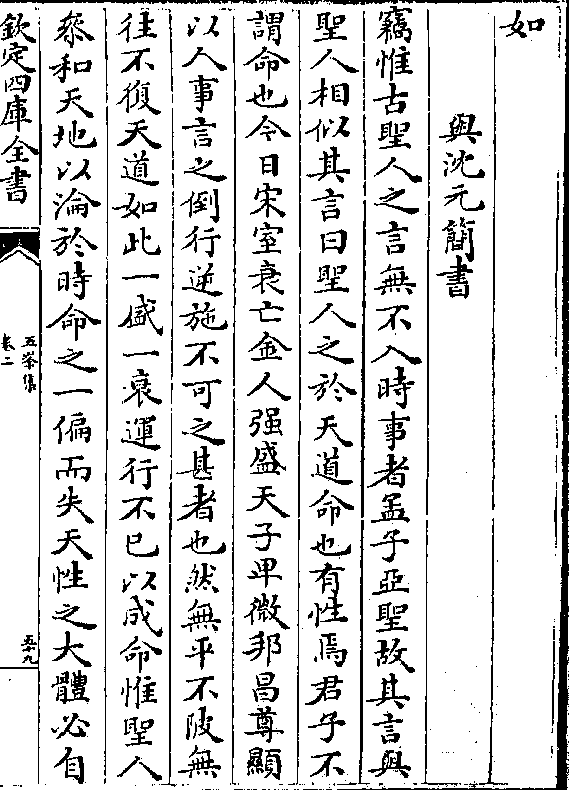 如
與沈元簡書
竊惟古聖人之言無不入時事者孟子亞聖故其言與
聖人相似其言曰聖人之於天道命也有性焉君子不
謂命也今日宋室衰亡金人强盛天子卑微邦昌尊顯
以人事言之倒行逆施不可之甚者也然無平不陂無
往不復天道如此一盛一衰運行不已以成命惟聖人
叅和天地以淪於時命之一偏而失天性之大體必自
欽定四庫全書
五峯集
卷二
五十九